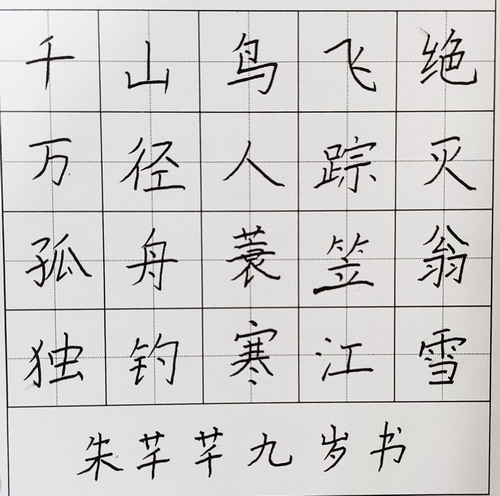 千山鸟飞绝
万径人踪灭
孤舟蓑笠翁
独钓寒江雪
朱芊芊九岁书